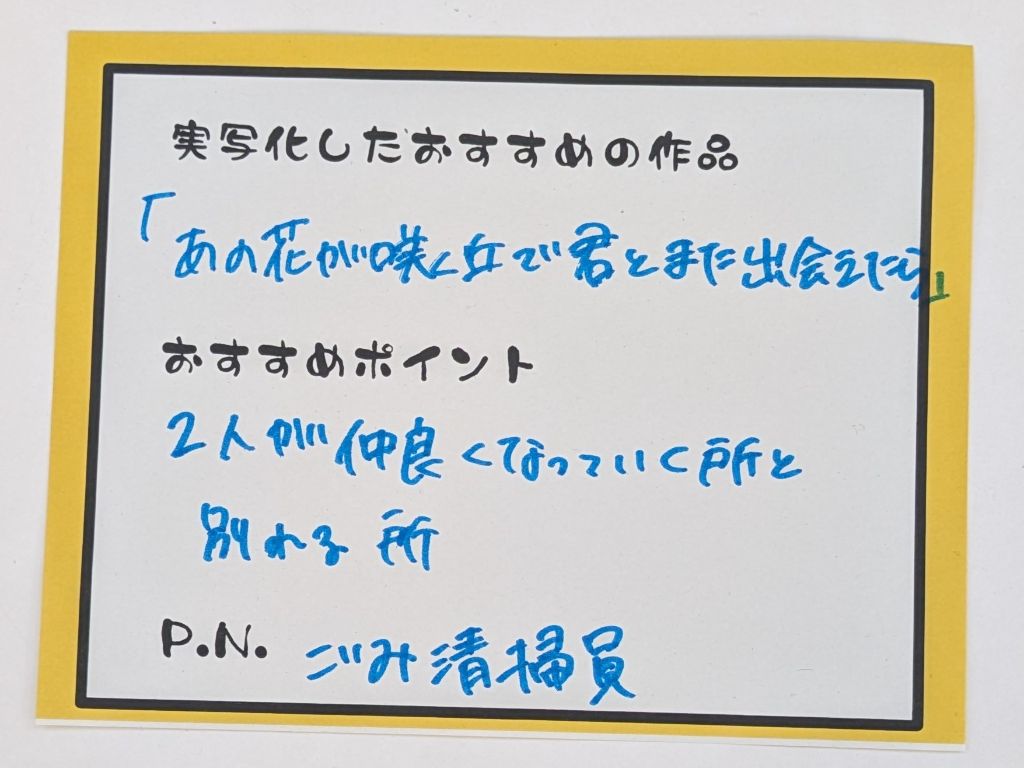 実写化したおすすめの作品
「あの花が咲く丘で君とまた出会えたら」
おすすめポイント
2人が仲良くなっていく所と
別れる所
P.N. ごみ清掃員